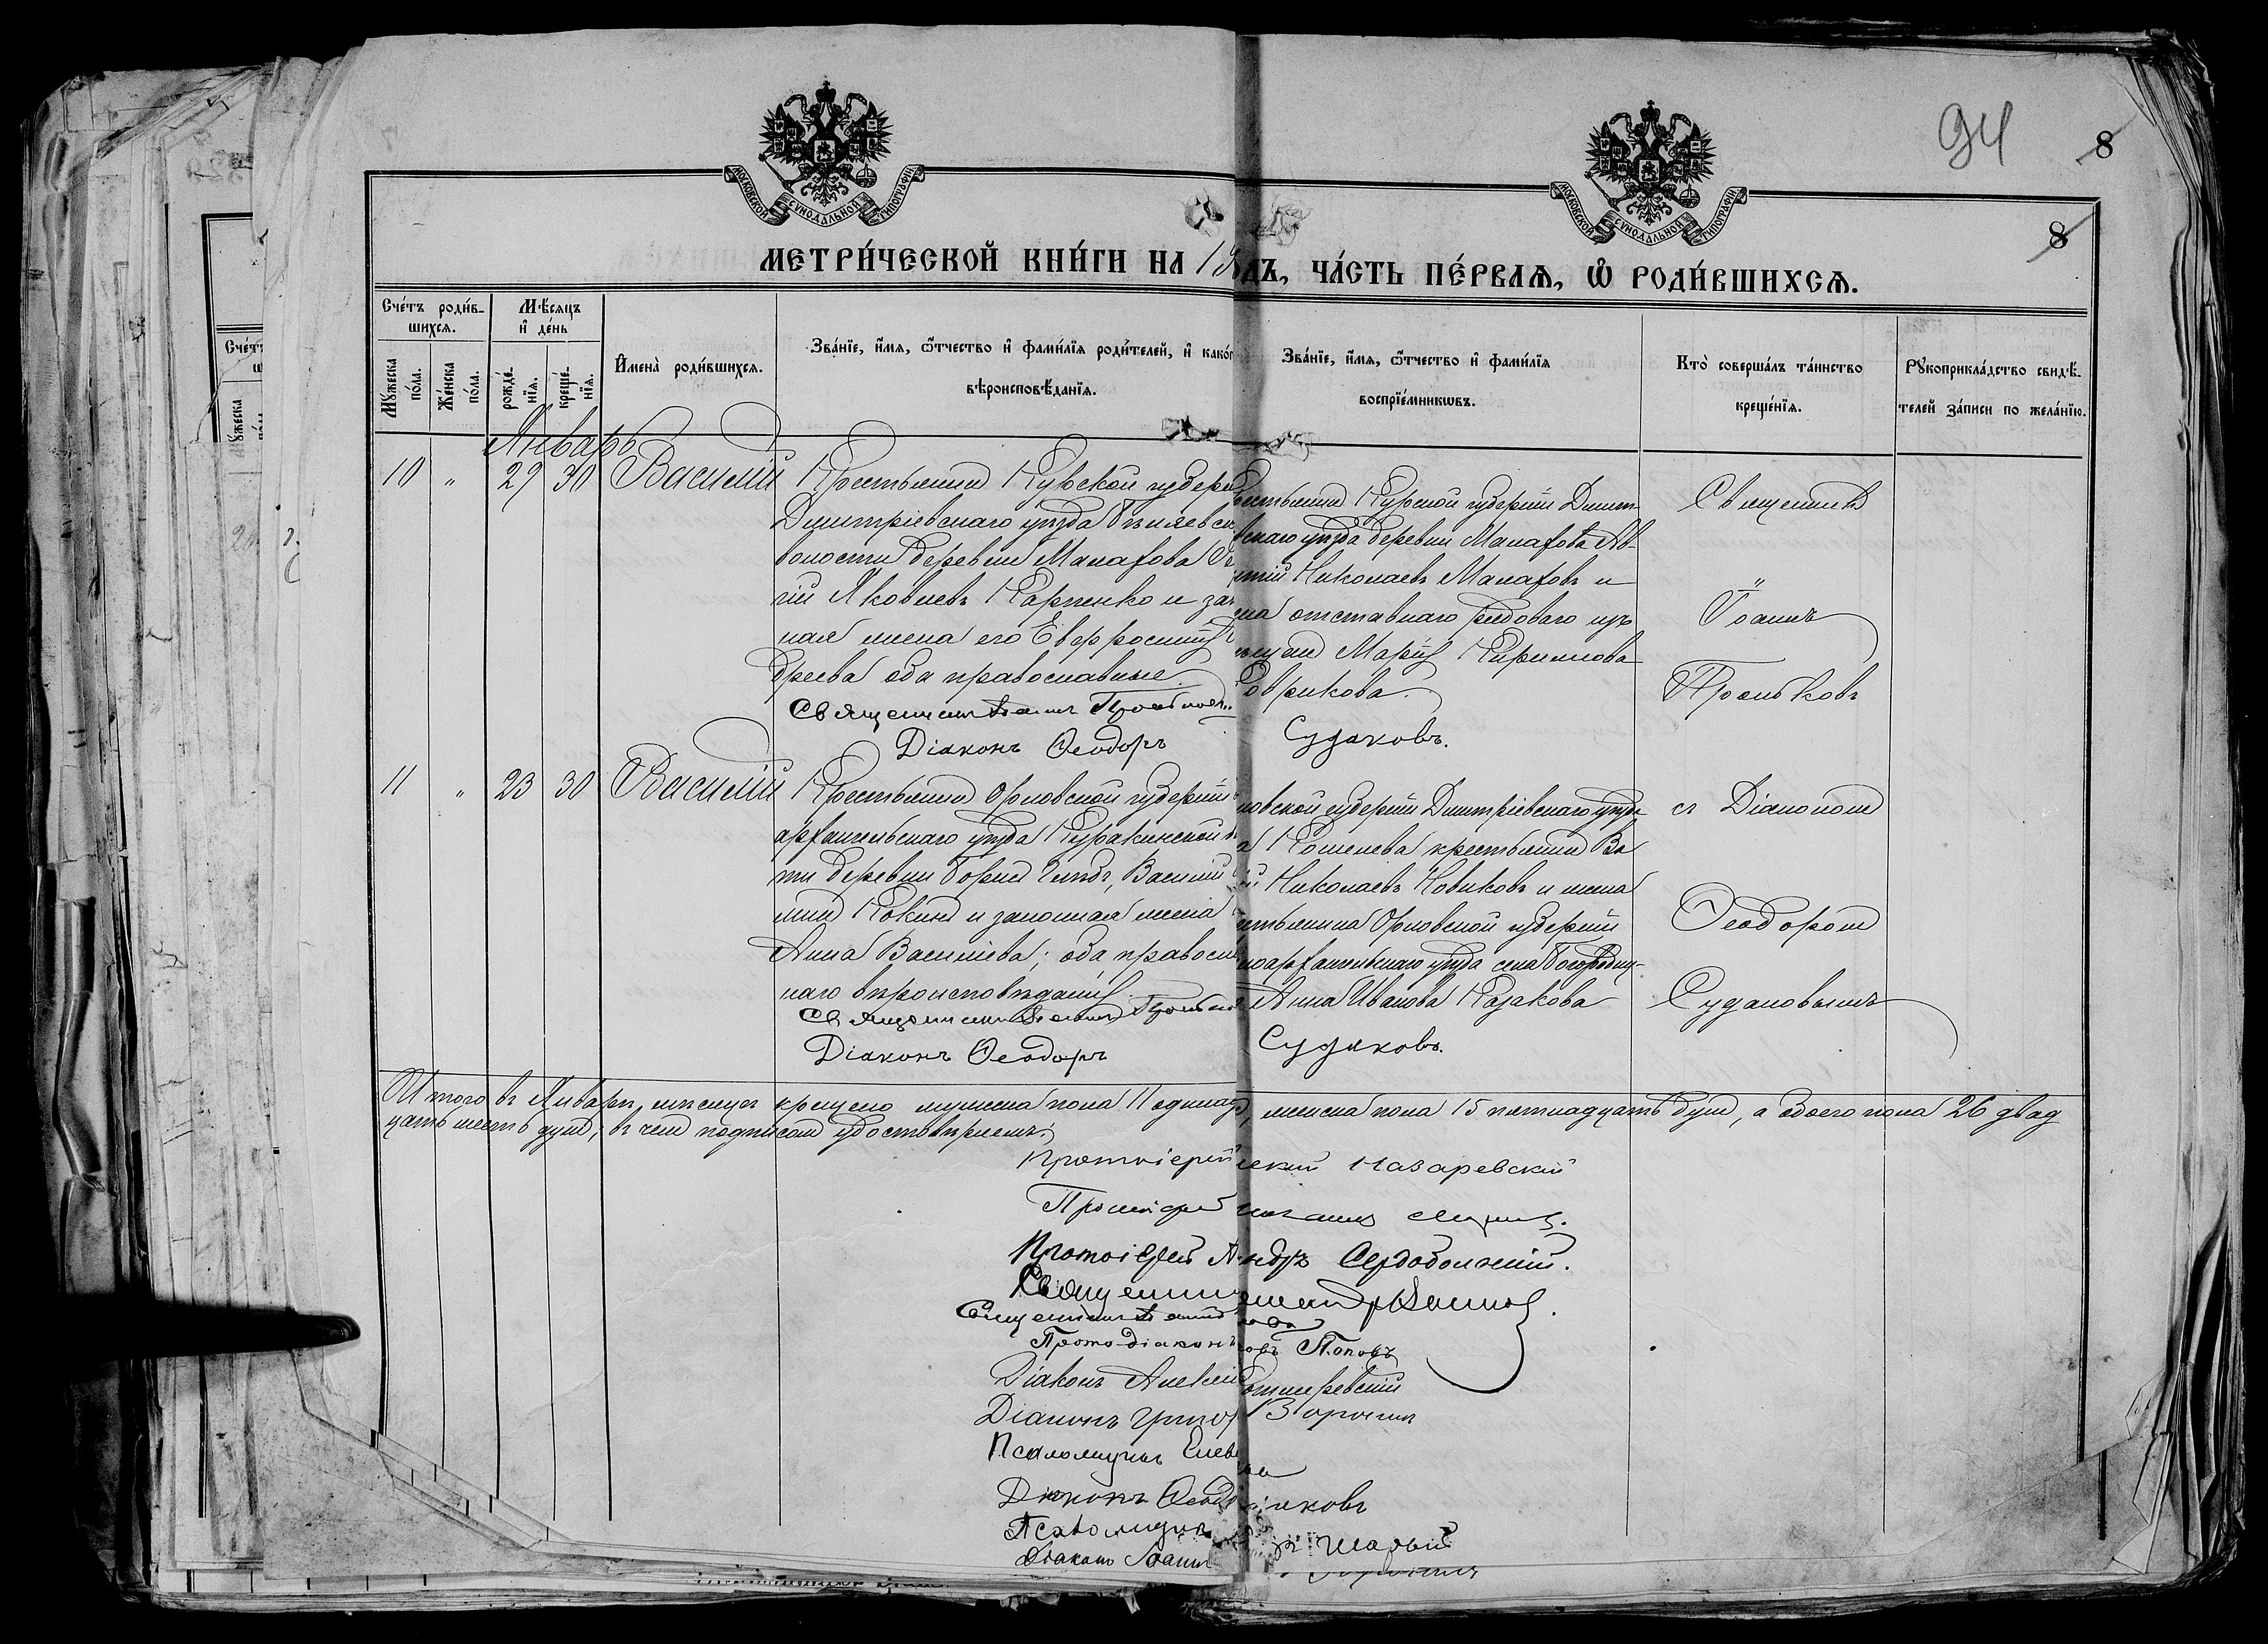 94
8
8
МОСКОВСКОЙ СУНОДАЛЬНОЙ ТИПОГРАФІИ
МОСКОВСКОЙ СУНОДАЛЬНОЙ ТИПОГРАФІИ
МЕТРИ́ЧЕСКОЙ КНИ́ГИ НА 19 ДЪ, ЧА́СТЬ ПЕ́РВАѦ, Ѽ РОДИ́ВШИХСѦ.
Сче́тъ роди́в-
шихсѧ.
Мꙋжеска по́ла.
Же́нска по́ла.
Мѣ́сяцъ
и҆ де́нь
рожде́-нїѧ.
креще́-нїѧ.
И҆мена̀ роди́вшихсѧ.
Зва́нїе, и҆́мѧ, ѻ҆́тчество и҆ фами́лїѧ роди́телей, и҆ како́г
вѣроисповѣ́данїѧ.
Зва́нїе, и҆́мѧ, ѻ҆́тчество и҆ фами́лїѧ
воспрїе́мникѡвъ.
Кто̀ соверша́лъ та́инство
креще́нїѧ.
Рꙋкоприкла́дство свидѣ́-
телей за́писи по жела́нїю.
Январь
10 " 29 30 Василій
Крестьянинъ Курской губерн
Дмитріевскаго уѣзда
волости деревни Малахова
гій Яковлевъ Карпенко и зак
ная жена его Евфросинія
дреева оба православные.
Священникъ Іоаннъ
Діаконъ Ѳеодоръ
рестьянинъ Курской губерніи Дмит-
вскаго уѣзда деревни Малахова Ав-
Николаевъ Малаховъ и
на отставнаго рядоваго изъ
Марія Кириллова
Судаковъ.
Священникъ
Іоаннъ
11 " 23 30 Василій
Крестьянинъ Орловской губерніи
архангельскаго уѣзда Куракинской
ти деревни Борисъ Василій
Кокинъ и законная жена
Анна Васильева; оба правосл
наго вѣроисповѣданія
Священникъ Іоаннъ
Діаконъ Ѳеодоръ
ловской губерніи Дмитріевскаго уѣзд
а Кошелева крестьянинъ Ва
ій Николаевъ Новиковъ и жена
естьянина Орловской губерніи
лоархангельскаго уѣзда села Богородиц-
Анна Иванова Казакова
Судаковъ.
съ Діакономъ
Ѳеодоромъ
Судаковымъ
Итого въ Январѣ мѣсяцѣ крещено мужеска пола 11 одиннад, женска пола 15 пятнадцать душъ, а обоего пола 26 двад
цать шесть душъ, въ чемъ подписомъ удостовѣряемъ:
Протоіерей Назаревскій
Протоіерей
Протоіерей Андр Сердобольскій.
Священникъ
Священникъ Іоаннъ
Протодіаконъ Поповъ
Діаконъ Алексій
Діаконъ Григор
Псаломщикъ
Діаконъ Ѳеод аковъ
Псаломщикъ Шарый
Діаконъ Іоаннъ